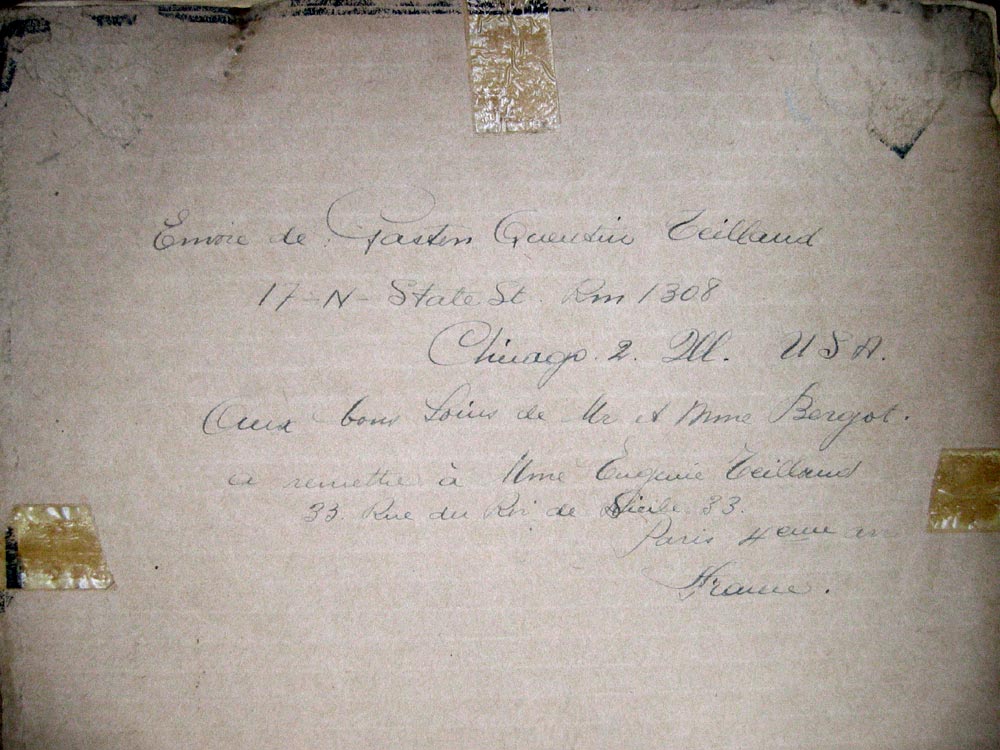 Envoie de Gaston Quentin Teilland
17-N-State St. Rm 1308
Chicago. 2. Ill. USA.
Aux bons Soins de Mr et Mme Bergot.
a remettre à Mme Eugénie Teilland
33 Rue du Roi de Sicile. 33.
Paris 4eme arr
France.